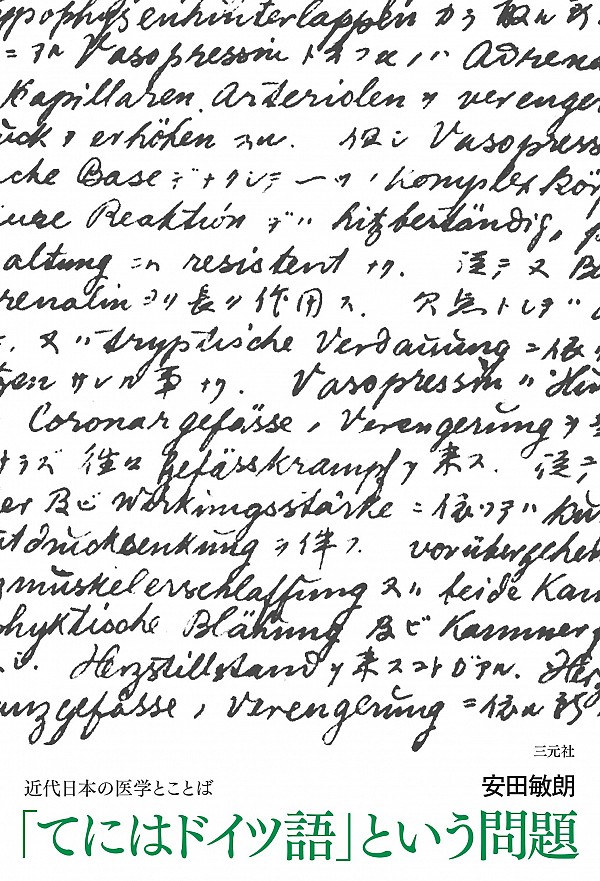 ypophysenhinterlappen カラ取ル所
＝テハ Vasopressin トヨブ。ハ Adrena
Kapillaren, Arteriolen ヲ verenger
ück ヲ erhöhen スル. 但シ Vasopress
che Base デナクシテ一ツノ Komplex Kör
ure Reaktion デハ hitzbeständig,
altung ニハ resistent ナリ. 従テ又
renalin ヨリ長ク作用ス. 欠点トシテハ
, 又ハ tryptische Verdauung ニ依
サレル事ナリ. Vasopressin ハ
Coronargefässe ノ Verengerung ヲ
ラズ往々 Gefässkrampf ヲ来ス. 従テ
er 及ビ Wirkungsstärke ニ依ツテハ
utdrucksenkung ヲ伴フ. vorübergehe
zmuskelerschlaffung 又ハ beide Kam
phyktische Blähung 及ビ Kammer
Herzstillstand ヲ来スコトガアル. Her
anzgefässe ノ Verengerung ニ依ル所
三元社
近代日本の医学とことば
安田敏朗
「てにはドイツ語」という問題